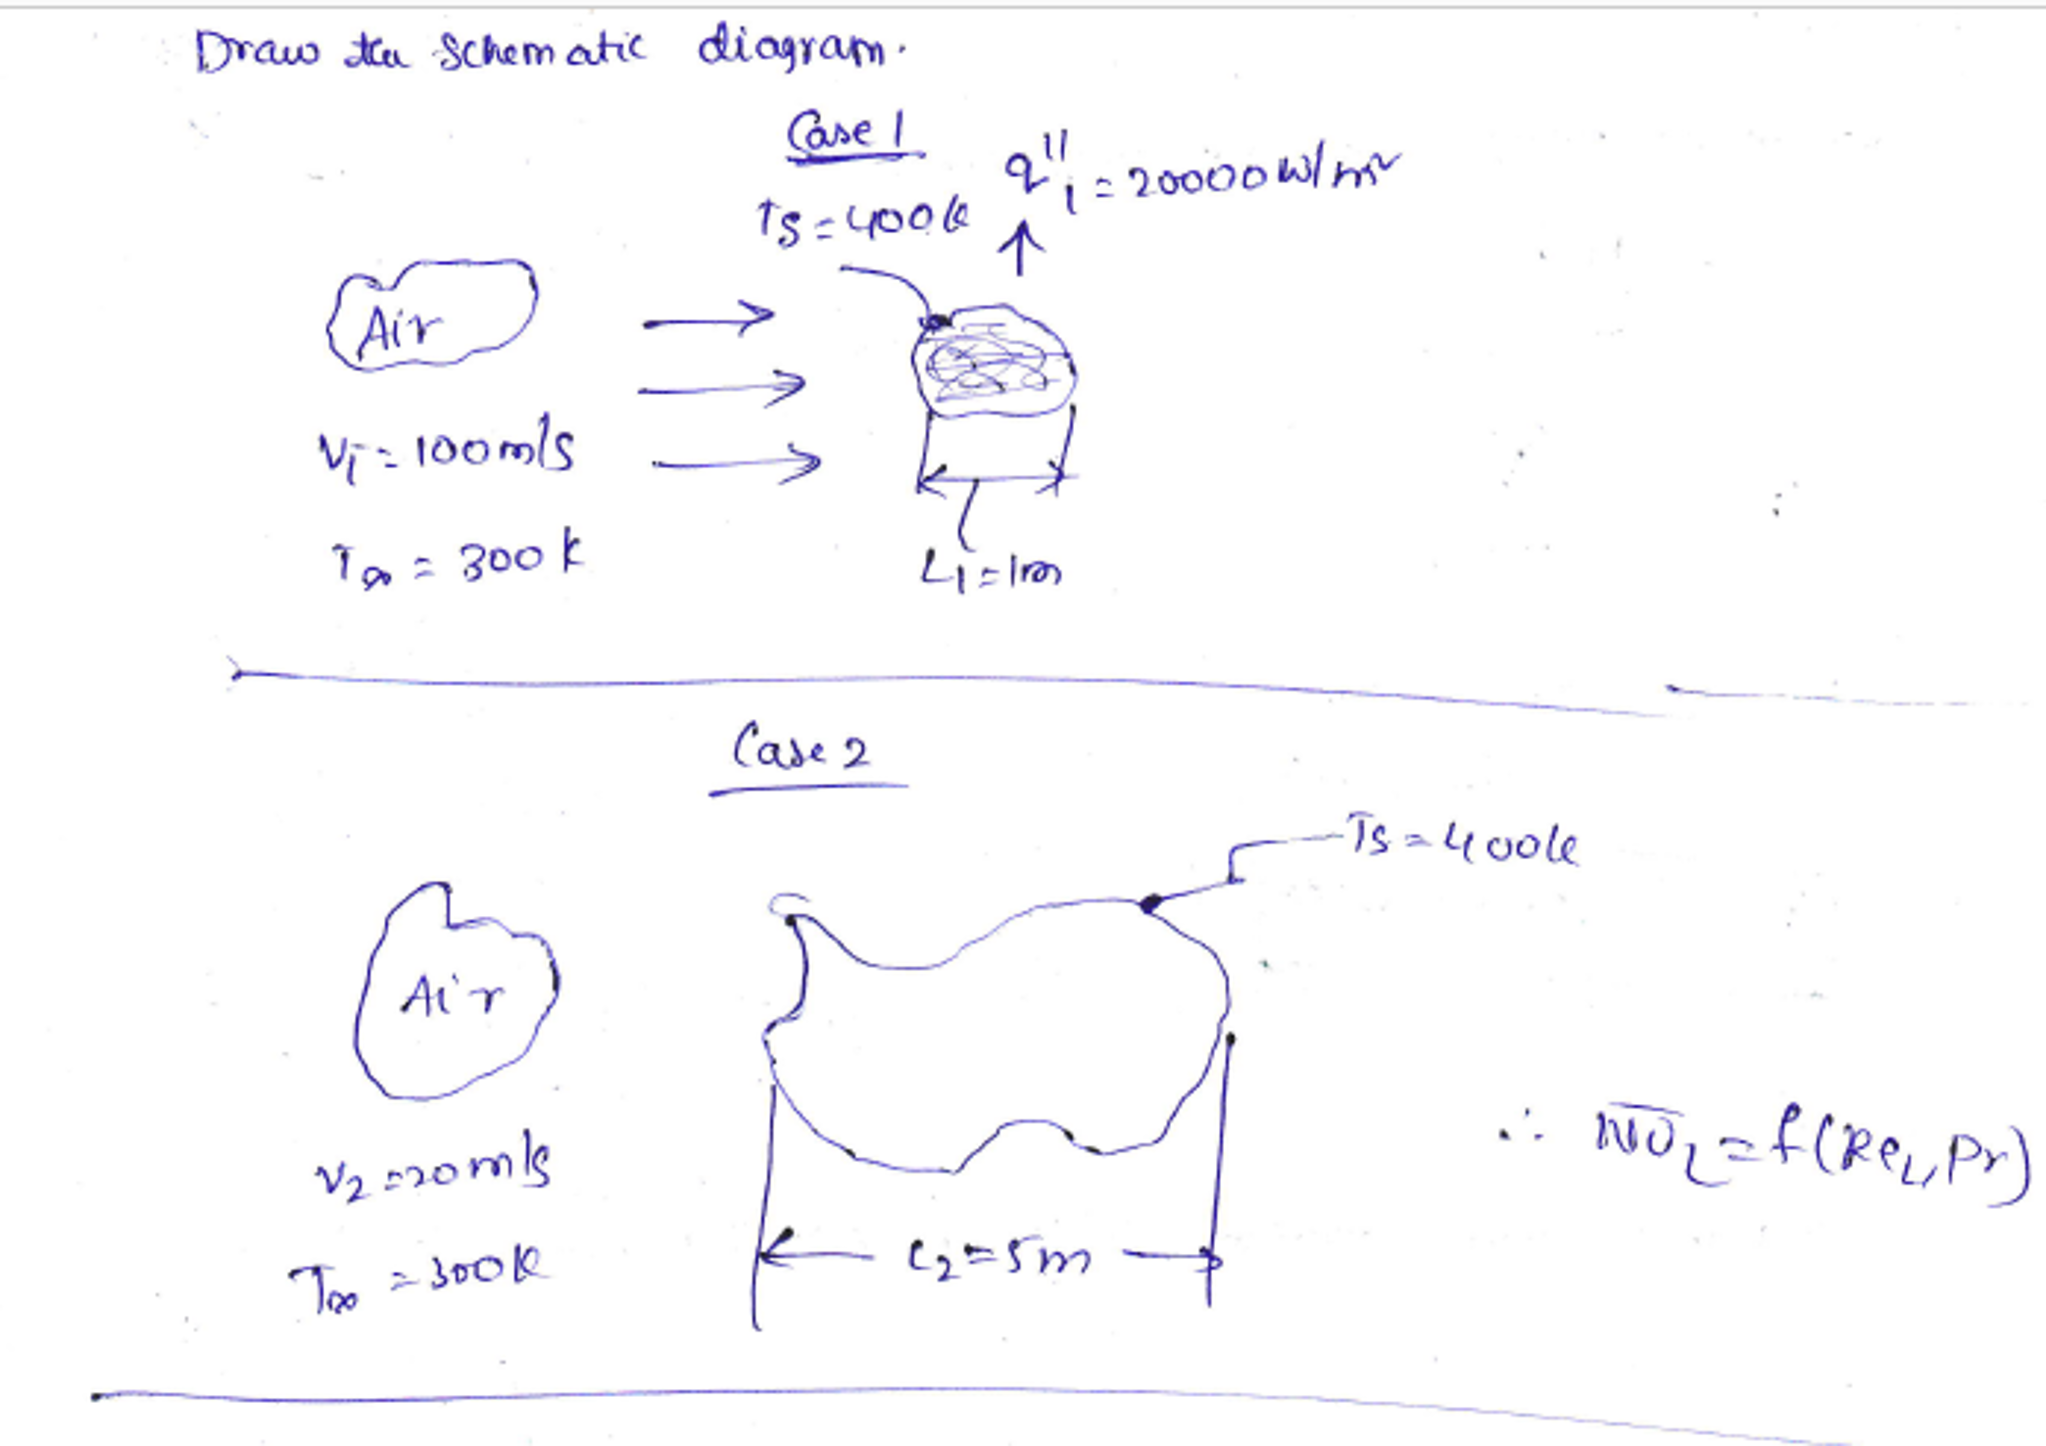 Draw the Schematic diagram.
Case 1
q''₁ = 20000 W/m²
Ts = 400k
Air
V₁ = 100 m/s
T∞ = 300 k
L₁ = 1m
Case 2
Ts = 400k
Air
V₂ = 20 m/s
T∞ = 300k
L₂ = 5m
∴ N̅u̅_L = f(Re_L, Pr)